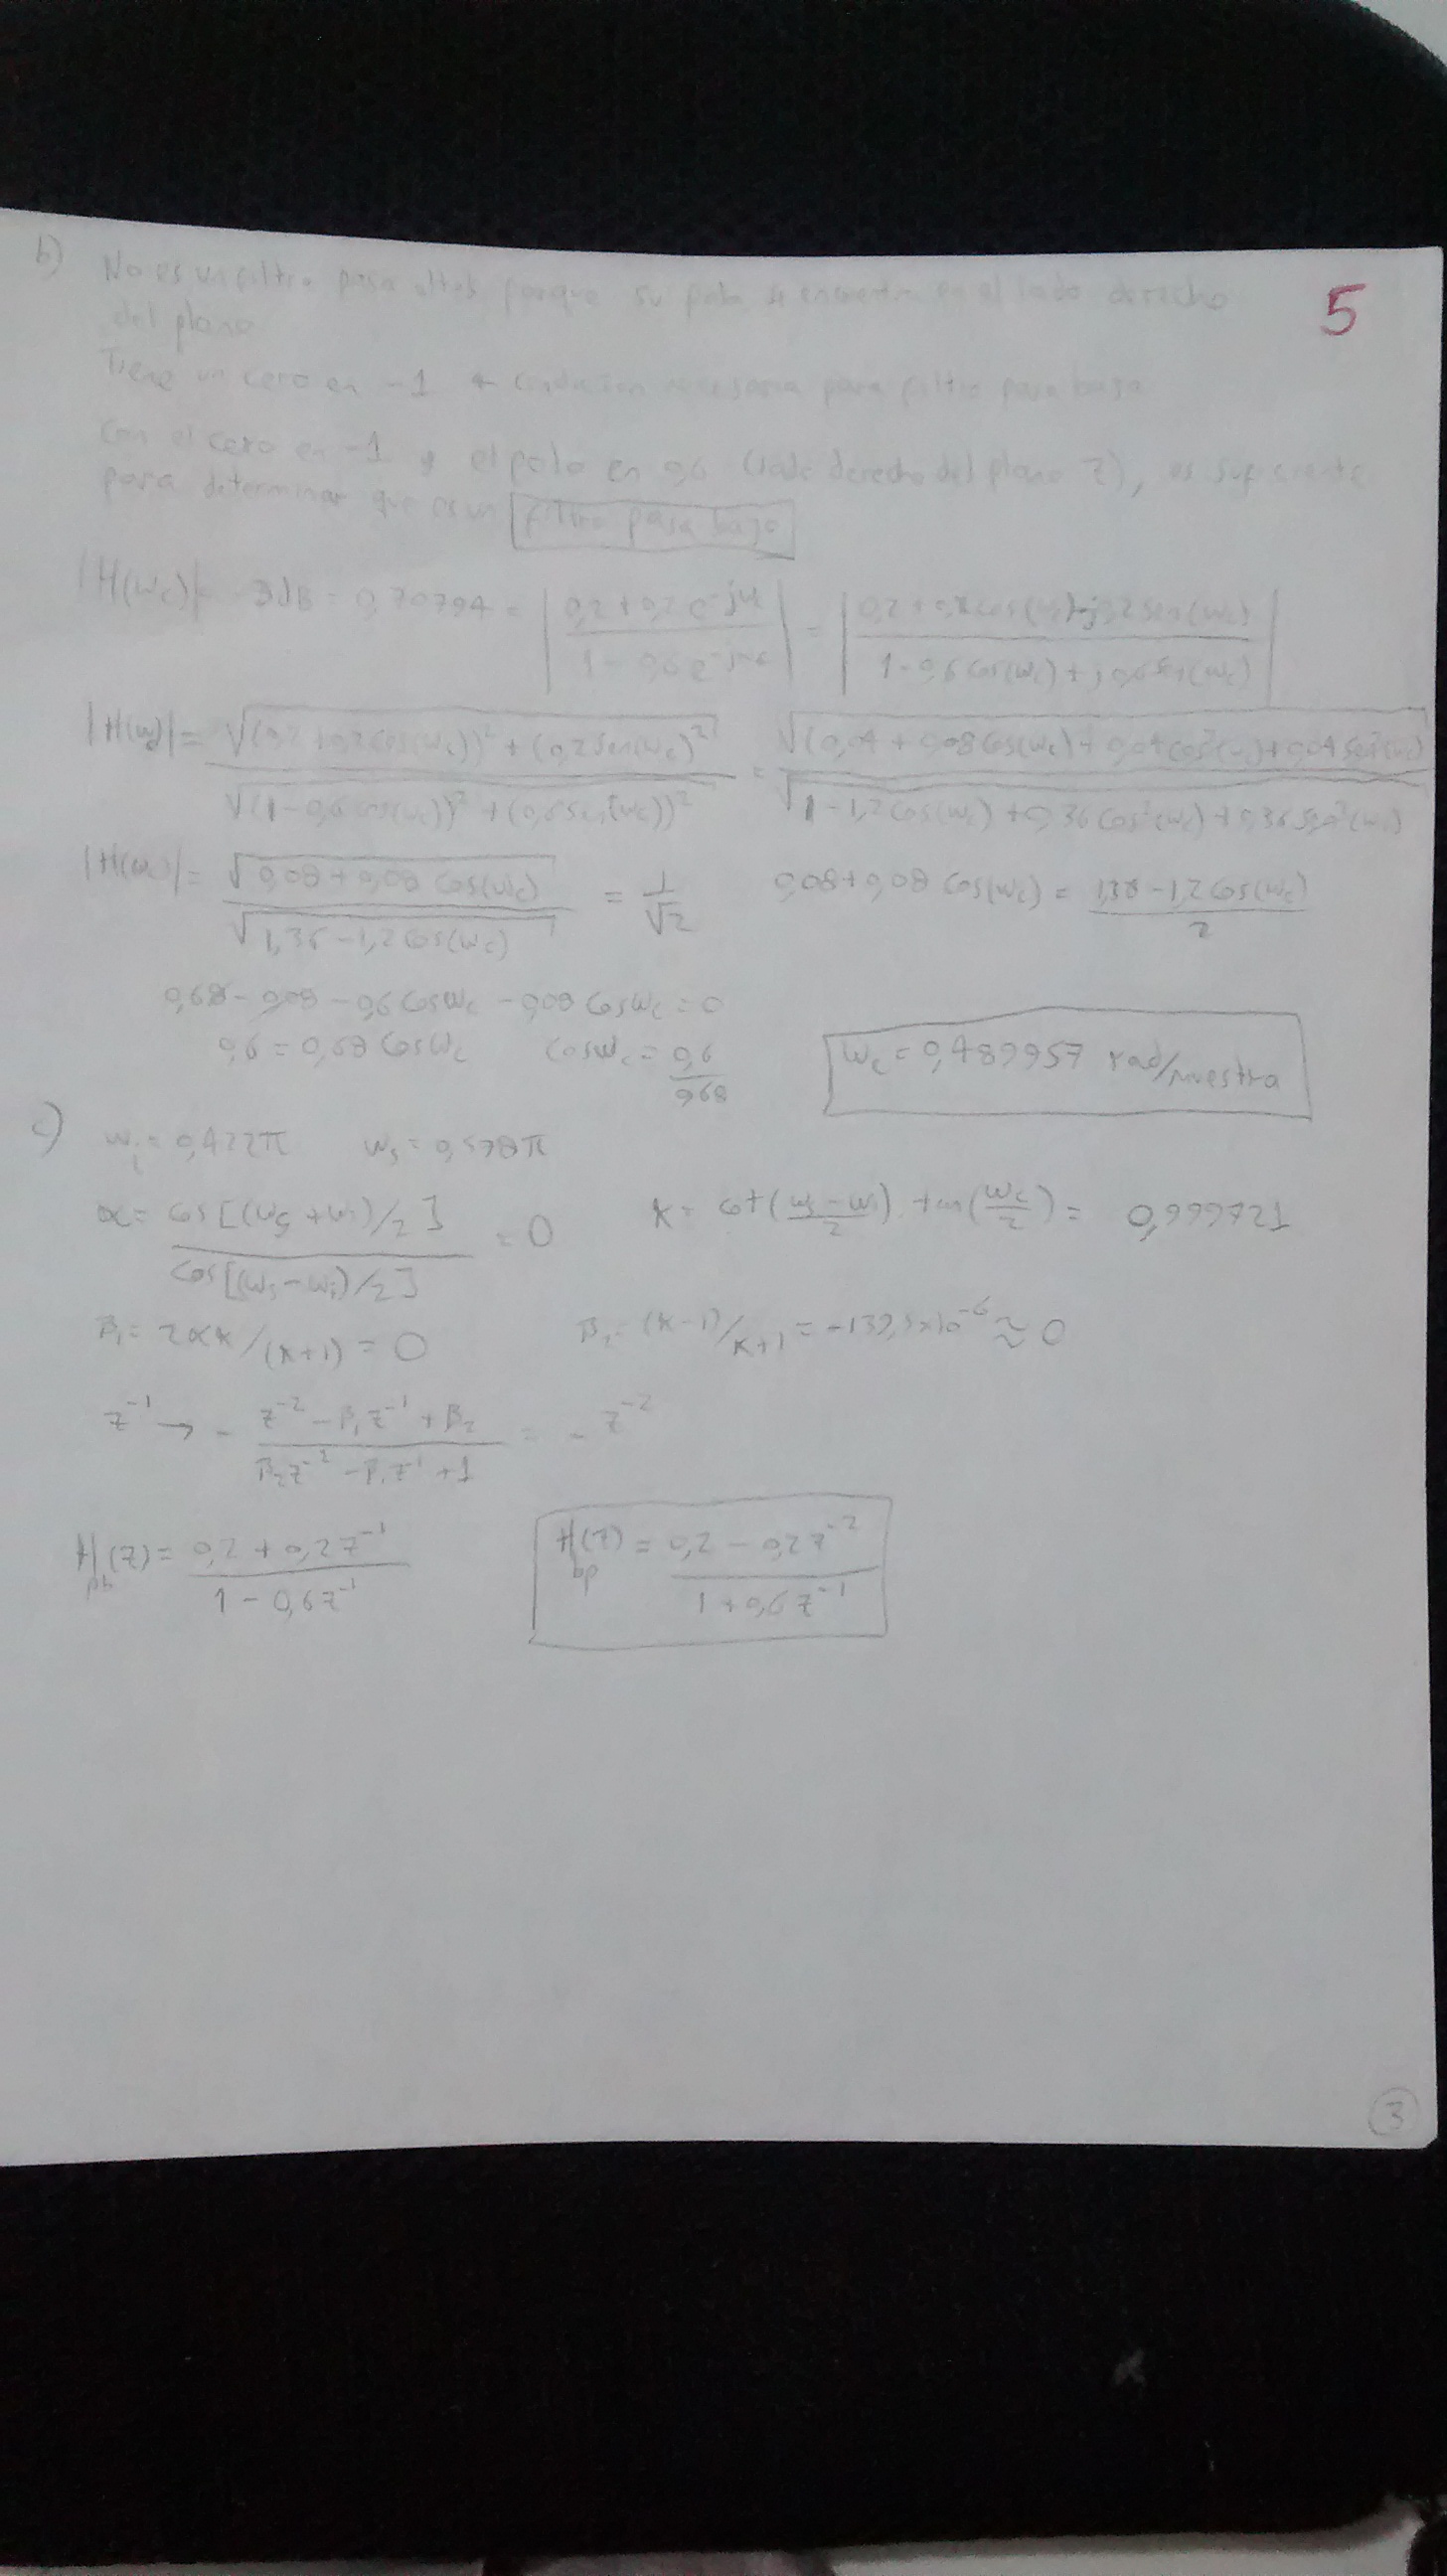 b) No es un filtro pasa altos porque su polo se encuentra en el lado derecho
5
del plano
Tiene un cero en -1 ← condición necesaria para filtro pasa bajo
Con el cero en -1 y el polo en 0,6 (lado derecho del plano z), es suficiente
para determinar que es un filtro pasa bajo
|H(wc)| = -3dB = 0,70794 = |(0,2+0,2e^-jwc)/(1-0,6e^-jwc)| = |(0,2+0,2cos(wc)-j0,2sen(wc))/(1-0,6cos(wc)+j0,6sen(wc))|
|H(wc)| = √((0,2+0,2cos(wc))²+(0,2sen(wc))²)/√((1-0,6cos(wc))²+(0,6sen(wc))²) = √(0,04+0,08cos(wc)+0,04cos²(wc)+0,04sen²(wc))/√(1-1,2cos(wc)+0,36cos²(wc)+0,36sen²(wc))
|H(wc)| = √(0,08+0,08cos(wc))/√(1,36-1,2cos(wc)) = 1/√2    0,08+0,08cos(wc) = (1,36-1,2cos(wc))/2
0,68-0,08-0,6coswc-0,08coswc=0
0,6=0,68coswc    coswc=0,6/0,68    wc=0,489957 rad/muestra
c) wi=0,422π    ws=0,578π
α=cos[(ws+wi)/2]/cos[(ws-wi)/2]=0    K=cot((ws-wi)/2).tan(wc/2)=0,999721
β1=2αK/(K+1)=0    β2=(K-1)/K+1=-139,5x10^-6≈0
z^-1 → -(z^-2-β1z^-1+β2)/(β2z^-2-β1z^-1+1) = -z^-2
H(z)pb=(0,2+0,2z^-1)/(1-0,6z^-1)    H(z)bp=(0,2-0,2z^-2)/(1+0,6z^-1)
3